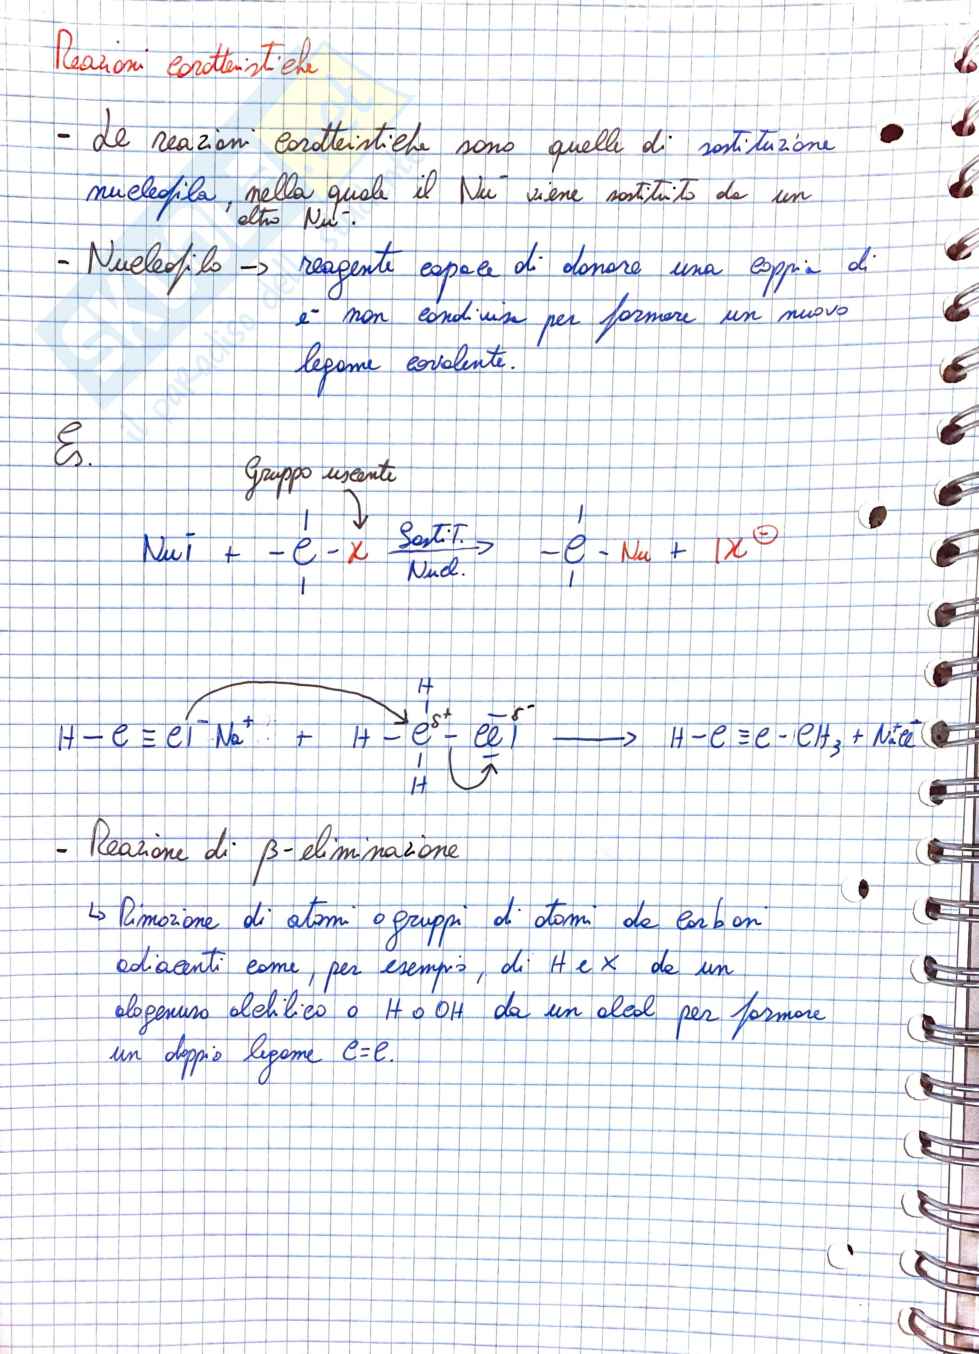 Reazioni caratteristiche
- Le reazioni caratteristiche sono quelle di sostituzione
nucleofila, nella quale il Nu⁻ viene sostituito da un
altro Nu⁻.
- Nucleofilo -> reagente capace di donare una coppia di
e⁻ non condivisa per formare un nuovo
legame covalente.
Es.
Gruppo uscente
Nu|⁻ + -C-X Sostit. Nucl. -> -C-Nu + |X⊖
H
H-C≡C|⁻Na⁺ + H-Cδ⁺-Cl|δ⁻ -> H-C≡C-CH₃ + Na⁺Cl⁻
H
- Reazione di β-eliminazione
↳ Rimozione di atomi o gruppi di atomi da carboni
adiacenti come, per esempio, di H e X da un
alogenuro alchilico o H o OH da un alcol per formare
un doppio legame C=C.
Skuola.net
il paradiso dello studente